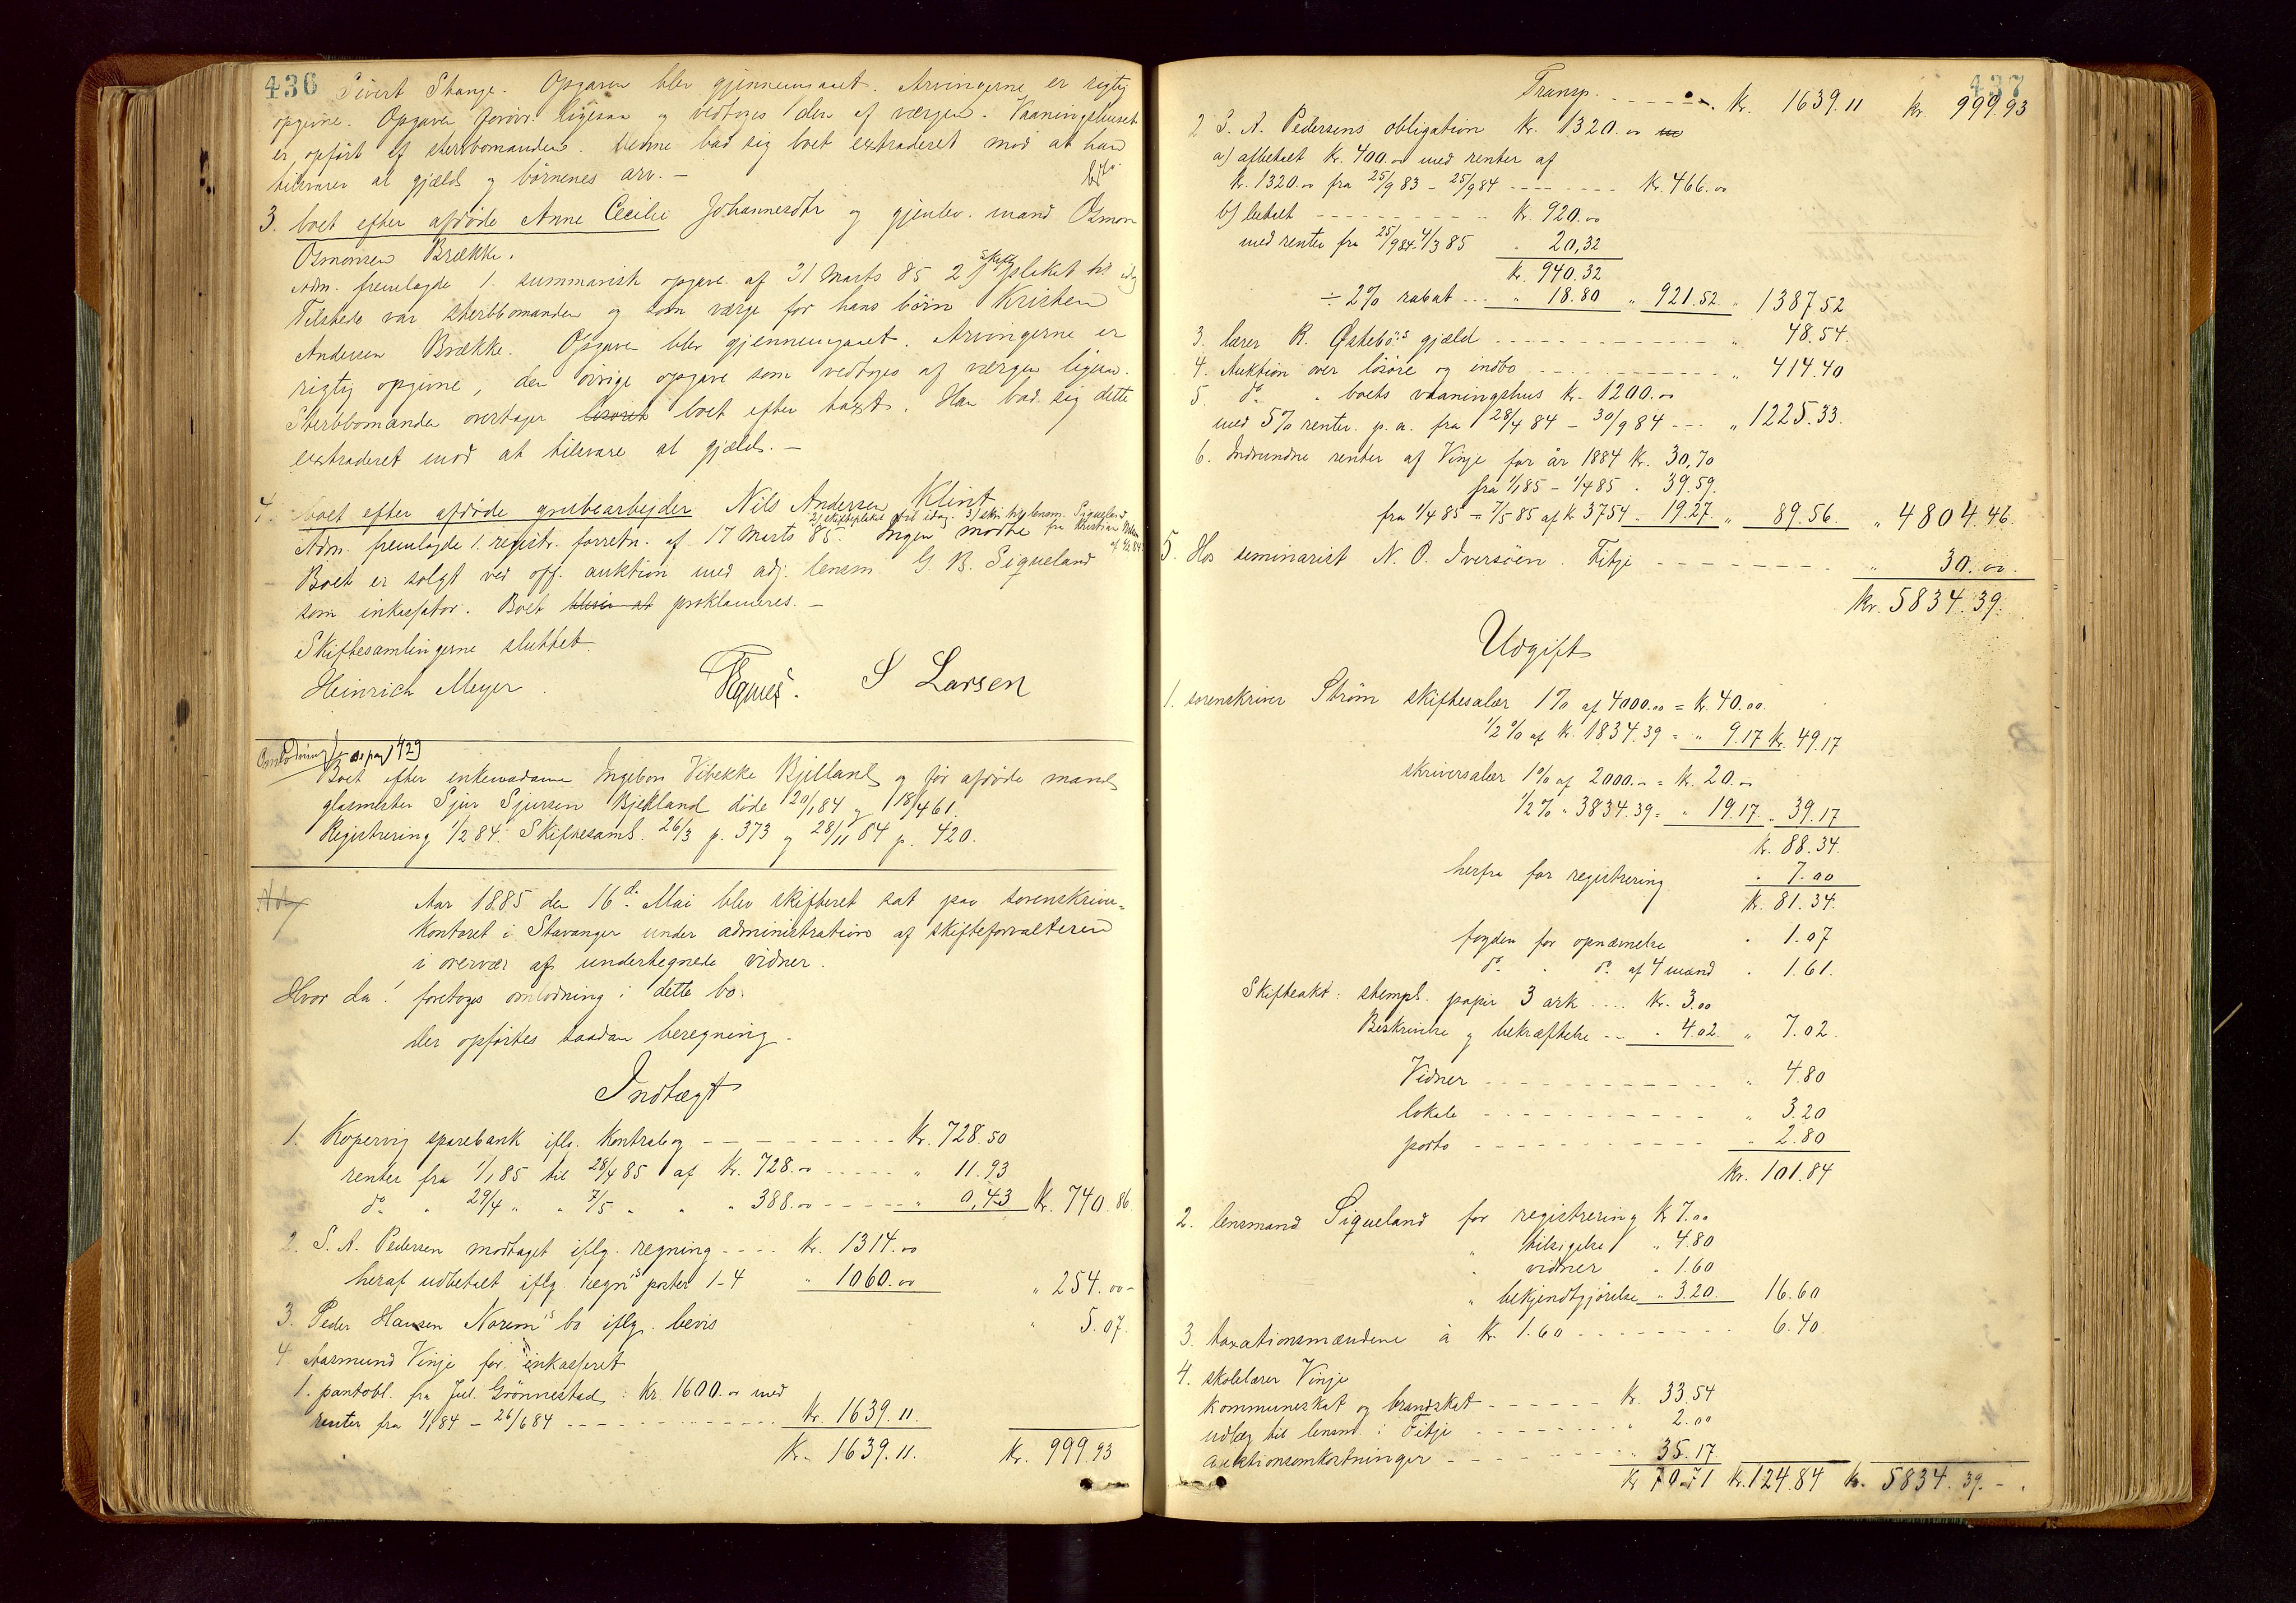 436
Sivert Stange. Opgaven blev gjennemgaaet. Arvingerne er rigtig
opgivne. Opgaven forøvr. ligesaa og vedtoges den af værgen. Vaaningshuset
er opført af sterbbomanden. Denne bad sig boet extraderet mod at han
tilsvarer al gjæld og børnenes arv. —
3. boet efter afdøde Anne Cecilie Johannesdtr og gjenlev. mand Osmon
Osmonsen Brække.
Adm. fremlagde 1. summarisk opgave af 31 Marts 85 2) skifteplakat til idag
Tilstede var sterbbomanden og som værge for hans børn Kristen
Andersen Brække. Opgaven blev gjennemgaaet. Arvingerne er
rigtig opgivne, den øvrige opgave som vedtoges af værgen ligesaa.
Sterbbomanden overtager løsøret boet efter taxt. Han bad sig dette
extraderet mod at tilsvare al gjæld. —
4. boet efter afdøde grubearbejder Nils Andersen Klint
2) skifteplakat til idag. 3) skr. fra lensm. Siqueland
Adm. fremlagde 1. registr. forretn. af 17 Marts 85. Ingen mødte
Boet er solgt ved off. auktion med adj. lensm. G. B. Siqueland
som inkassator. Boet bliver at proklameres. —
Skiftesamlingerne sluttet.
Heinrich Meyer S Larsen
Omlodning se pag 429
Boet efter enkemadame Ingebor Vibekke Kjelland og før afdøde mand
glasmester Sjur Sjursen Kjelland døde 20/1 84 og 18/4 61.
Registrering 1/2 84. Skiftesaml. 26/3 p. 373 og 28/11 84 p. 420.
Aar 1885 den 16de Mai blev skifteret sat paa sorenskriver-
kontoret i Stavanger under administration af skifteforvalteren
i overvær af undertegnede vidner.
Hvor da! foretoges omlodning i dette bo.
der opførtes saadan beregning.
Indtægt
1. Kopervig sparebank iflg. kontrabog — Kr. 728.50
renter fra 1/1 85 til 28/4 85 af Kr. 728.00 ..... " 11.93
do " 29/4 " " 7/5 " " " 388.00 ----- " 0,43 Kr. 740.86
2. S. A. Pedersen modtaget iflg. regning .... Kr. 1314.00
heraf udbetalt iflg. regns poster 1-4 " 1060.00 " 254.00-
3. Peder Hansen Norems bo iflg. bevis " 5.07.
4 Aasmund Vinje har inkasseret
1. pantobl. fra Jul. Grönnestad: Kr. 1600.00 med
renter fra 1/1 84 - 26/6 84 ---------- Kr. 1639.11.
Kr. 1639.11. Kr. 999.93
437
Transp. ------ Kr. 1639.11 Kr. 999.93
2 S. A. Pedersens obligation Kr. 1320.00
a) afbetalt Kr. 400.00 med renter af
Kr. 1320.00 fra 25/9 83 - 25/9 84 -------- Kr. 466.00
b) betalt ---------- Kr. 920.00
med renter fra 25/9 84-4/3 85 " 20,32
Kr. 940.32
÷ 2% rabat ... " 18.80 " 921.52 " 1387.52
3. lærer R. Østebøs gjæld ------------ " 48.54.
4. Auktion over løsøre og indbo ------------ " 414.40
5. do " boets vaaningshus Kr. 1200.00
med 5% renter p. a. fra 28/4 84 - 30/9 84 --- " 1225.33.
6. Indvundne renter af Vinje for år 1884 Kr. 30,70
fra 1/1 85 - 1/4 85 " 39.59.
fra 1/4 85 - 7/5 85 af Kr 3754 " 19.27 " 89.56. " 4804.46.
5. Hos seminarist N. O. Iversøen. Fitje --------- " 30.00.
Kr. 5834.39.
Udgift
1. sorenskriver Strøm skiftesalær 1% af 4000.00 = Kr. 40.00
1/2% af Kr. 1834.39 = " 9.17 Kr. 49.17
skriversalær 1% af 2000.- = Kr. 20.-
1/2% " 3834.39 = " 19.17. " 39.17
Kr. 88.34.
herfra for registrering " 7.00
Kr. 81.34.
fogden for opnævnelse " 1.07
do " do af 4 mænd " 1.61.
Skifteakt: stempl. papir 3 ark .... Kr. 3.00
Beskrivelse og bekræftelse -- " 4.02. " 7.02.
Vidner ------------ " 4.80
lokale ------------ " 3.20
porto ------------ " 2.80
Kr. 101.84
2. lensmand Siqueland for registrering Kr 7.00
" tilsigelse " 4.80
" vidner " 1.60
" bekjendtgjørelse " 3.20. 16.60
3. taxationsmændene à Kr. 1.60 -------- 6.40
4. skolelærer Vinje
kommuneskat og brandskat ------ Kr. 33.54
udlæg til lensm. i Fitje -------- " 2.00
auktionsomkostninger -------- " 35.17.
Kr 70.71 Kr. 124.84 Kr. 5834.39.-.